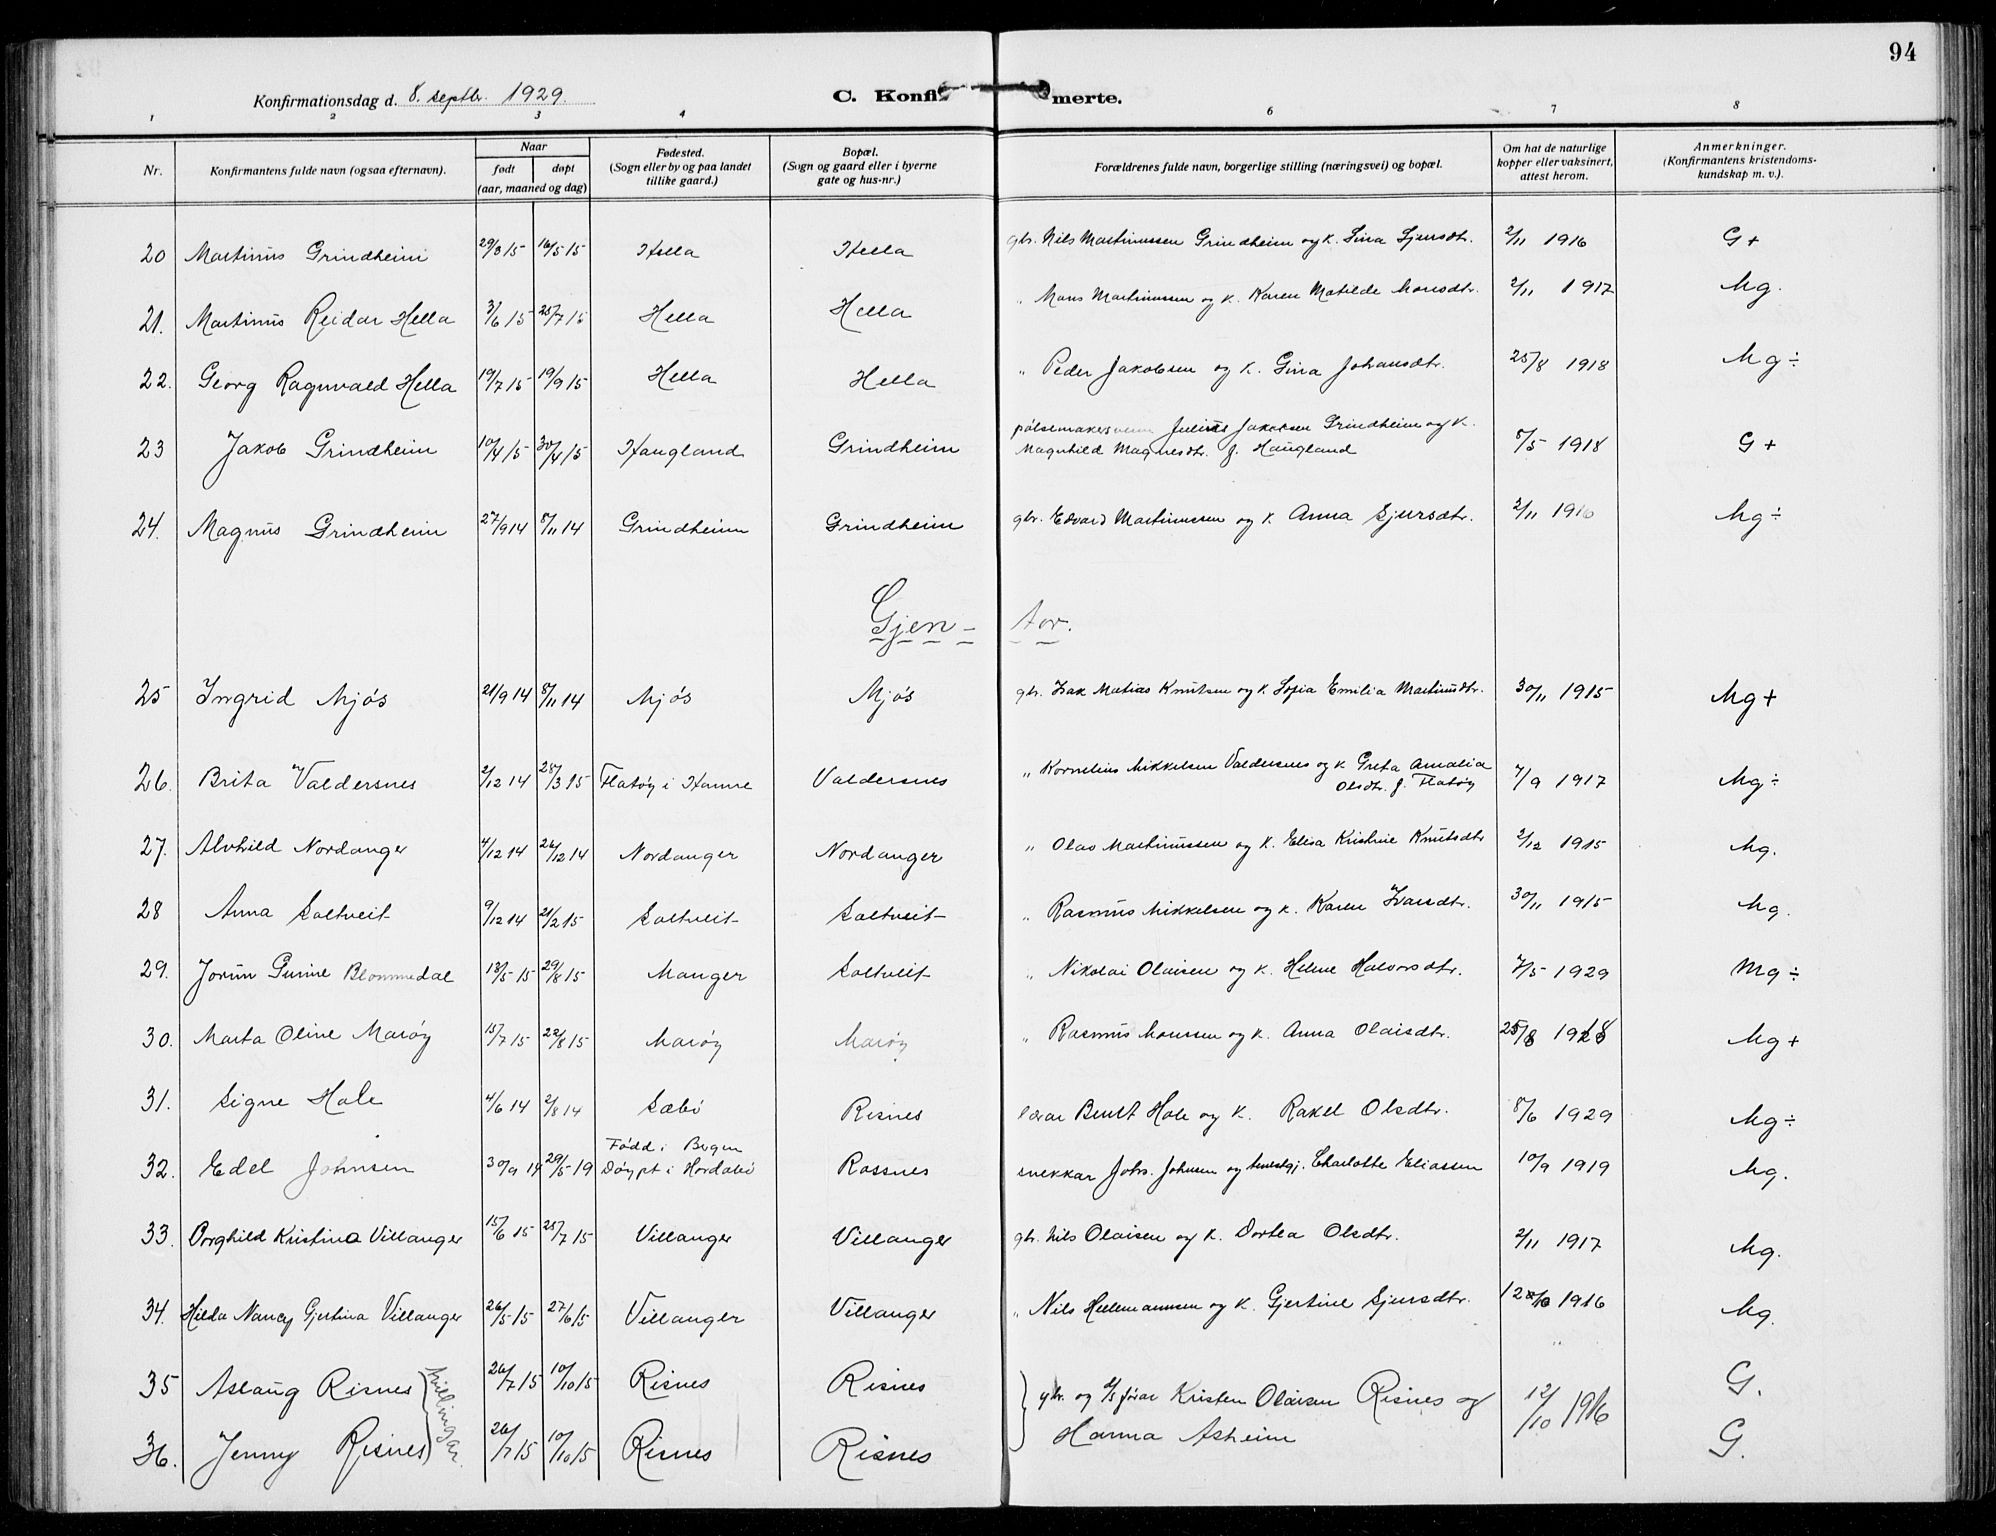 94
Konfirmationsdag d. 8. septbr. 1929.
C. Konfirmerte.
1 2 3 4 6 7 8
Nr. Konfirmantens fulde navn (ogsaa efternavn). Naar født døpt (aar, maaned og dag) Fødested. (Sogn eller by og paa landet tillike gaard.) Bopæl. (Sogn og gaard eller i byerne gate og hus-nr.) Forældrenes fulde navn, borgerlige stilling (næringsvei) og bopæl. Om hat de naturlige kopper eller vaksinert, attest herom. Anmerkninger. (Konfirmantens kristendomskundskap m. v.).
20 Martinus Grindheim 29/3 15 16/5 15 Hella Hella gbr. Nils Martinussen Grindheim og k. Sina Sjursdtr. 2/11 1916 G+
21. Martinus Reidar Hella 3/6 15 25/7 15 Hella Hella " Mons Martinussen og k. Karen Matilde Monsdtr. 2/11 1917 Mg.
22. Georg Ragnvald Hella 19/7 15 19/9 15 Hella Hella " Peder Jakobsen og k. Gina Johansdtr. 25/8 1918 Mg ÷
23 Jakob Grindheim 10/4 15 30/4 15 Haugland Grindheim pølsemakersvenn Julius Jakobsen Grindheim og k. Magnhild Magnesdtr. f. Haugland 8/5 1918 G +
24. Magnus Grindheim 27/9 14 8/11 14 Grindheim Grindheim gbr. Edvard Martinussen og k. Anna Sjursdtr. 2/11 1916 Mg ÷
Gjen-tor.
25 Ingrid Mjøs 21/9 14 8/11 14 Mjøs Mjøs gbr. Isak Matias Knutsen og k. Sofia Emilia Martinusdtr. 30/11 1915 Mg +
26. Brita Valdersnes 2/12 14 28/3 15 Flatøy i Hamre Valdersnes " Kornelius Mikkelsen Valdersnes og k Greta Amalia Olsdtr. f. Flatøy 7/9 1917 Mg ÷
27. Alvhild Nordanger 4/12 14 26/12 14 Nordanger Nordanger " Olao Martinussen og k. Elisa Kristine Knutsdtr 2/12 1915 Mg.
28 Anna Soltveit 9/12 14 21/2 15 Soltveit Soltveit " Rasmus Mikkelsen og k. Karen Ivarsdtr. 30/11 1915 Mg.
29. Jorun Gunne Blommedal 18/5 15 29/8 15 Manger Soltveit " Nikolai Olaisen og k. Helene Halvorsdtr. 7/5 1929 Mg ÷
30. Marta Oline Marøy 15/7 15 22/8 15 Marøy Marøy " Rasmus Monssen og k. Anna Olaisdtr. 25/8 1918 Mg +
31. Signe Hole 4/6 14 2/8 14 Sæbø Risnes lærar Bent Hole og k. Rakel Olsdtr. 8/6 1929 Mg ÷
32. Edel Johnsen 30/9 14 29/5 19 Fødd i Bergen Døypt i Hordabø Rossnes snekkar Johs. Johnsen og tenestgj. Charlotte Eliassen 10/9 1919 Mg.
33. Borghild Kristina Villanger 15/6 15 25/7 15 Villanger Villanger gbr. Nils Olaisen og k. Dortea Olsdtr. 2/11 1917 Mg.
34. Hilda Nancy Gjertina Villanger 26/5 15 27/6 15 Villanger Villanger " Nils Hellemannsen og k. Gjertine Sjursdtr. 12/10 1916 Mg.
35 Aslaug Risnes 26/7 15 10/10 15 Risnes Risnes gbr. og d/sførar Kristen Olaisen Risnes og Hanna Asheim 12/10 1916 G.
tvillingar
36. Jenny Risnes 26/7 15 10/10 15 Risnes Risnes G.